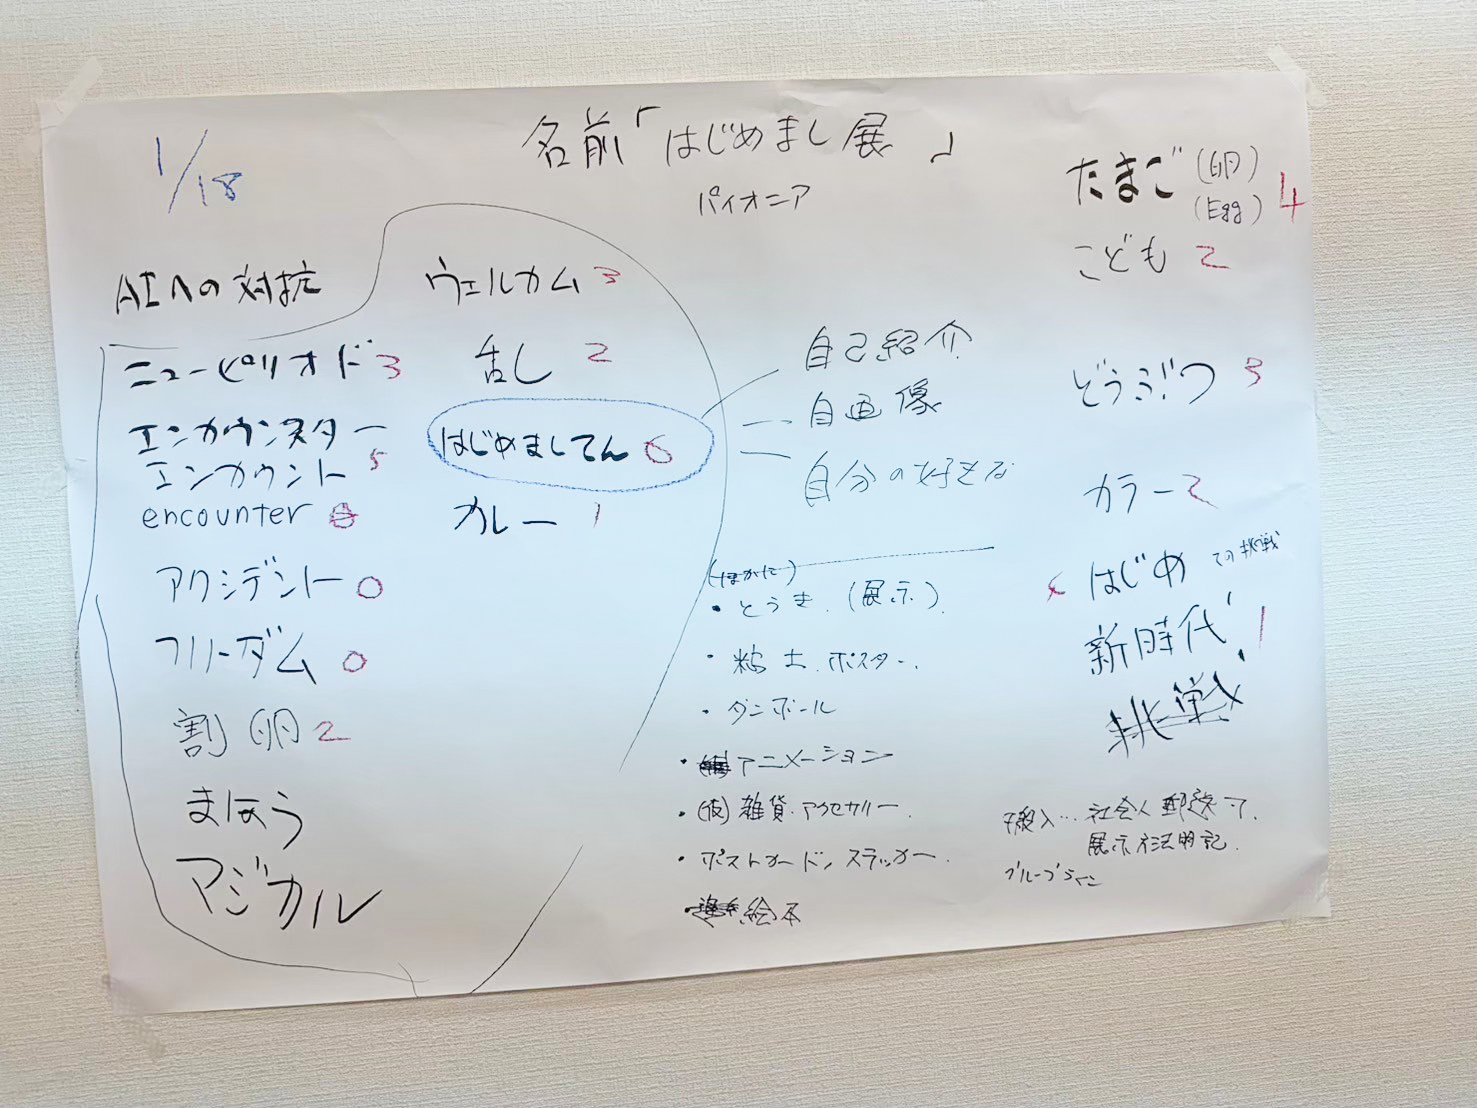 1/18
名前「はじめまし展」
パイオニア
AIへの対抗
ニューピリオド 3
エンカウンター
エンカウント 5
encounter
アクシデント 0
フリーダム 0
割卵 2
まほう
マジカル
ウェルカム 3
乱し 2
はじめましてん 6
カレー 1
自己紹介
自画像
自分の好きな
(ほかに)
・とうき.(展示).
・粘土.ポスター.
・ダンボール
・アニメーション
・(仮)雑貨.アクセサリー.
・ポストカード,ステッカー.
・絵本
たまご(卵)(Egg) 4
こども 2
どうぶつ 3
カラー 2
はじめての挑戦
新時代 1
挑戦
搬入…社会人 郵送で.
展示方法明記.
グループライン